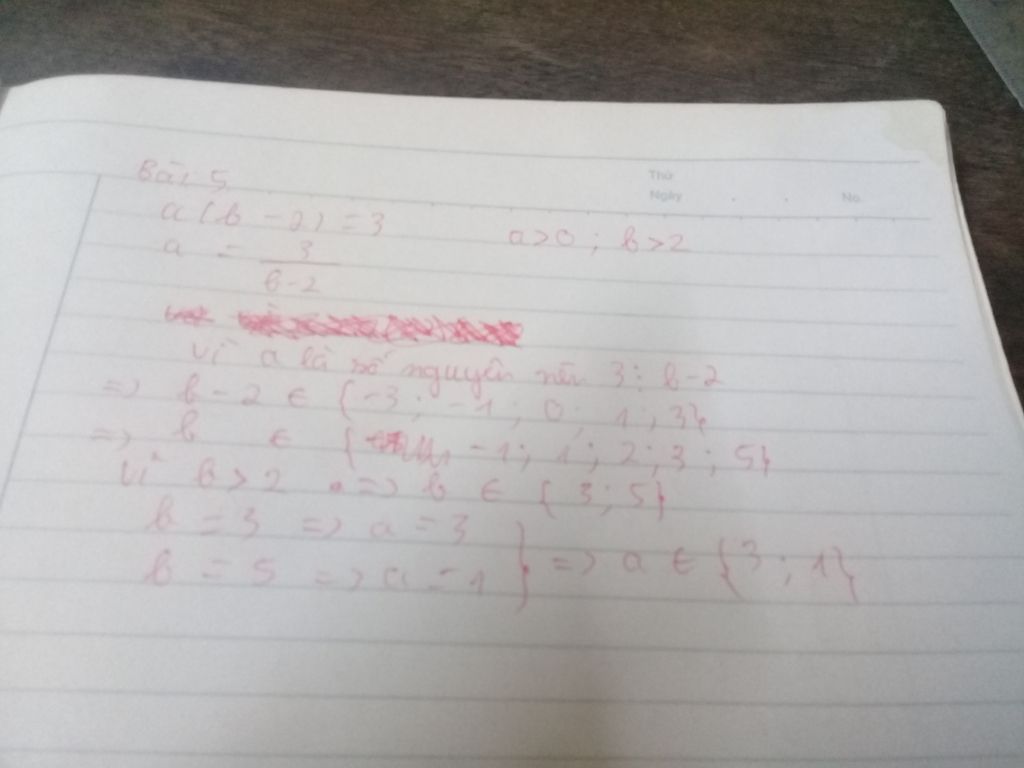 Thứ
Ngày . . No.
Bài 5
a(b - 2) = 3 a>0 ; b>2
a = 3
b-2
Vì a là số nguyên nên 3 ⋮ b-2
=> b - 2 ∈ {-3 ; -1 ; 0 ; 1 ; 3}
=> b ∈ { -1 ; 1 ; 2 ; 3 ; 5}
Vì b > 2 => b ∈ {3 ; 5}
b = 3 => a = 3
b = 5 => a = 1 } => a ∈ {3 ; 1}